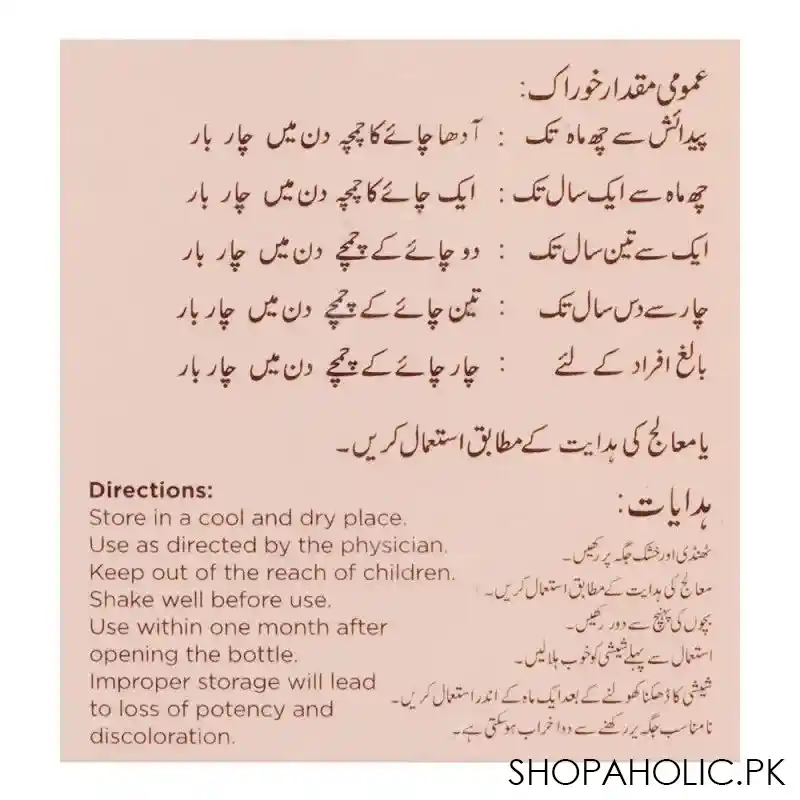 عمومی مقدار خوراک:
پیدائش سے چھ ماہ تک : آدھا چائے کا چمچہ دن میں چار بار
چھ ماہ سے ایک سال تک : ایک چائے کا چمچہ دن میں چار بار
ایک سے تین سال تک : دو چائے کے چمچے دن میں چار بار
چار سے دس سال تک : تین چائے کے چمچے دن میں چار بار
بالغ افراد کے لئے : چار چائے کے چمچے دن میں چار بار
یا معالج کی ہدایت کے مطابق استعمال کریں۔
Directions:
Store in a cool and dry place.
Use as directed by the physician.
Keep out of the reach of children.
Shake well before use.
Use within one month after
opening the bottle.
Improper storage will lead
to loss of potency and
discoloration.
ہدایات:
ٹھنڈی اور خشک جگہ پر رکھیں۔
معالج کی ہدایت کے مطابق استعمال کریں۔
بچوں کی پہنچ سے دور رکھیں۔
استعمال سے پہلے شیشی کو خوب ہلالیں۔
شیشی کا ڈھکنا کھولنے کے بعد ایک ماہ کے اندر استعمال کریں۔
نامناسب جگہ پر رکھنے سے دوا خراب ہوسکتی ہے۔
SHOPAHOLIC.PK